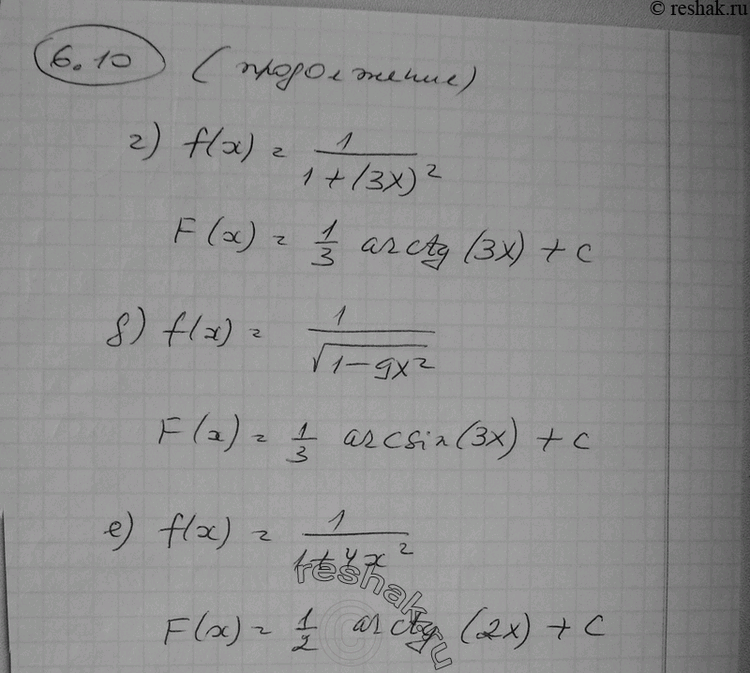 © reshak.ru
6.10 (продолжение)
г) f(x) = 1/(1+(3x)²)
F(x) = 1/3 arctg (3x) + c
д) f(x) = 1/√(1-9x²)
F(x) = 1/3 arcsin(3x) + c
е) f(x) = 1/(1+4x²)
F(x) = 1/2 arctg (2x) + c
reshak.ru